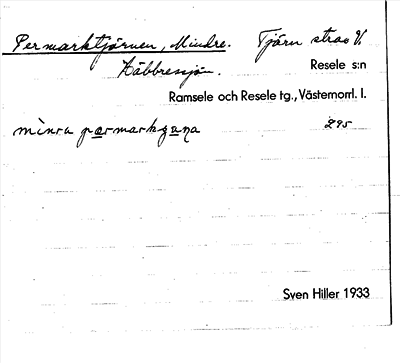 Permarktjärnen, Mindre. Tjärn strax V.
Häbbressjön. Resele s:n
Ramsele och Resele tg., Västernorrl. l.
mìnra pærmarkȷana 295
Sven Hiller 1933